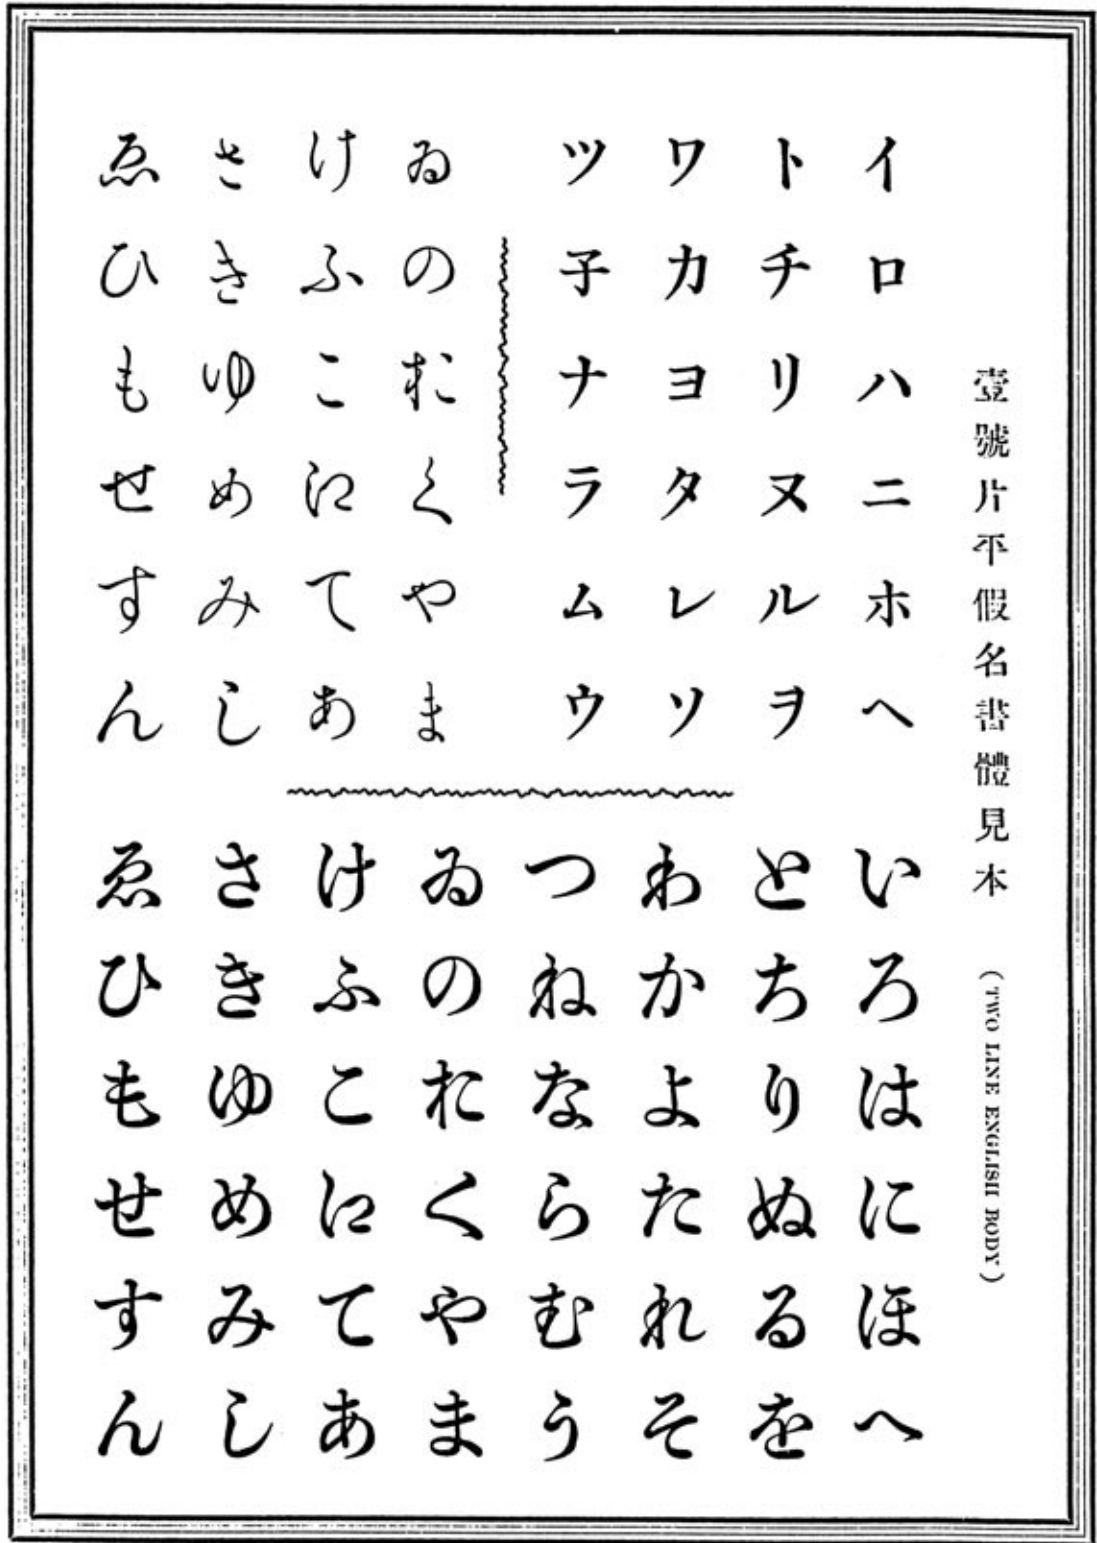 壹號片平假名書體見本 (TWO LINE ENGLISH BODY)
イロハニホヘ
トチリヌルヲ
ワカヨタレソ
ツ子ナラムウ
ゐのおくやま
けふこ𛀁てあ
さきゆめみし
ゑひもせすん
いろはにほへ
とちりぬるを
わかよたれそ
つねならむう
ゐのおくやま
けふこ𛀁てあ
さきゆめみし
ゑひもせすん